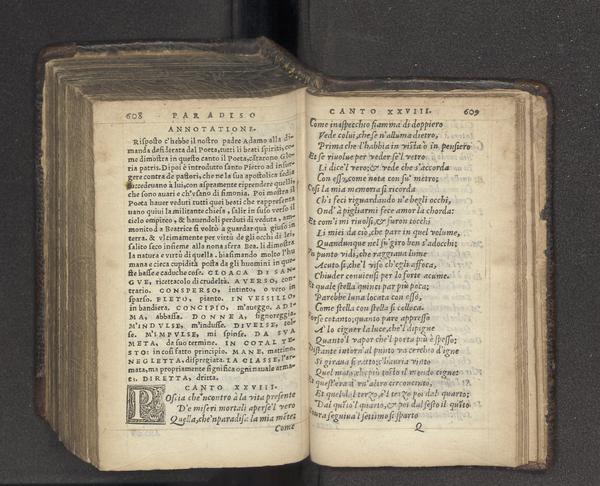 608 PARADISO
ANNOTATIONE.
Risposto c'hebbe il nostro padre Adamo alla di-
manda desiderata dal Poeta, tutti i beati spiriti, co-
me dimostra in questo canto il Poeta, cãtarono Glo-
ria patris. Dipoi è introdutto santo Pietro ad insur-
gere contra de pastori, che ne la sua apostolica sedia
succedevano a lui, con aspramente riprendere quelli
che sono avari e ch'usano di simonia. Poi mostra il
Poeta haver veduti tutti quei beati che rappresenta
vano quivi la militante chiesa, salir in suso verso il
cielo empireo, & havendoli perduti di veduta, am-
monito da Beatrice si voltò a guardar quà giuso in
terra. & ultimamente per virtù de gli occhi di lei
salito seco insieme alla nona sfera Bea. li dimostra
la natura e virtù di quella. biasimando molto l'hu
mana e cieca cupidità posta da gli huomini in que-
ste basse e caduche cose. CLOACA DI SAN-
GUE, ricettacolo di crudeltà. AVERSO, con-
trario. CONSPERSO, intinto, o vero in
sparso. FLETO, pianto. IN VESSILLO,
in bandiera. CONCIPIO, m'aveggo. ADI-
MA, abbassa. DONNEA, signoreggia.
M'INDULSE, m'indusse. DIVELSE, tol-
se. M'IMPULSE, mi spinse. DA SUA
META, da suo termine. IN COTAL TE-
STO: in cosi fatto principio. MANE, mattino.
NEGLETTA, dispregiata. LA CLASSE, l'ar-
mata, ma propriamente significa ogni navale arma-
ta. DIRETTA, dritta.
CANTO XXVIII.
POscia che'ncontro à la vita presente
D'e miseri mortali aperse'l vero
Quella, che'nparadisa la mia mẽte;
Come
CANTO XXVIII. 609
Come in ispecchio fiamma di doppiero
Vede colui, che se n'alluma dietro,
Prima che l'habbia in vista ò in pensiero
Et se rivolve per veder se'l vetro
Li dice'l vero; & vede che s'accorda
Con esso, come nota con su' metro:
Cosi la mia memoria si ricorda
Ch'i feci riguardando n'e begli occhi,
Ond'à pigliarmi fece amor la chorda:
Et com'i mi rivolsi, & furon tocchi
Li miei da ciò, che pare in quel volume,
Quandunque nel su' giro ben s'adocchi:
Un punto vidi, che raggiava lume
Acuto sì, che'l viso ch'egli affoca,
Chiuder conviensi per lo forte acume.
Et quale stella quinci par più poca;
Parebbe luna locata con esso,
Come stella con stella si colloca.
Forse cotanto, quanto pare appresso
A lo cigner la luce, che'l dipigne
Quanto'l vapor che'l porta più è spesso;
Distante intorn'al punto un cerchio d'igne
Si girava sì ratto; c'havria vinto
Quel moto, che più tosto il mondo cigne:
Et quest'era d'un'altro circoncinto,
Et quel dal terzo, e'l terzo poi dal quarto;
Dal quinto'l quarto, & poi dal sesto il quĩto
Sovra seguiva'l settimo sì sparto
Q